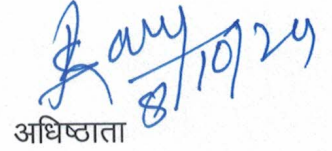 8/10/24
अधिष्ठाता